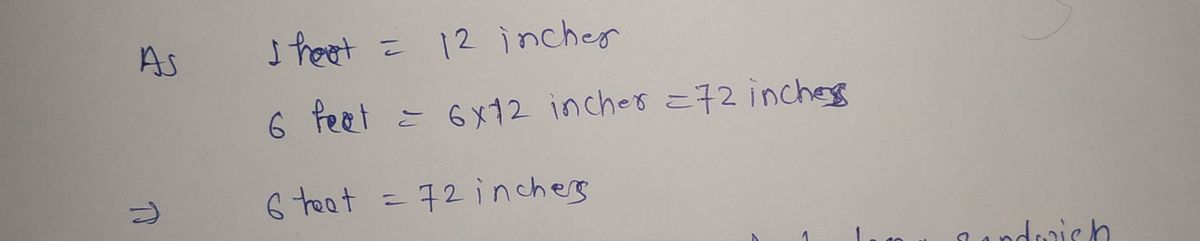 As 1 feet = 12 inches
6 feet = 6x12 inches = 72 inches
=> 6 feet = 72 inches
sandwich